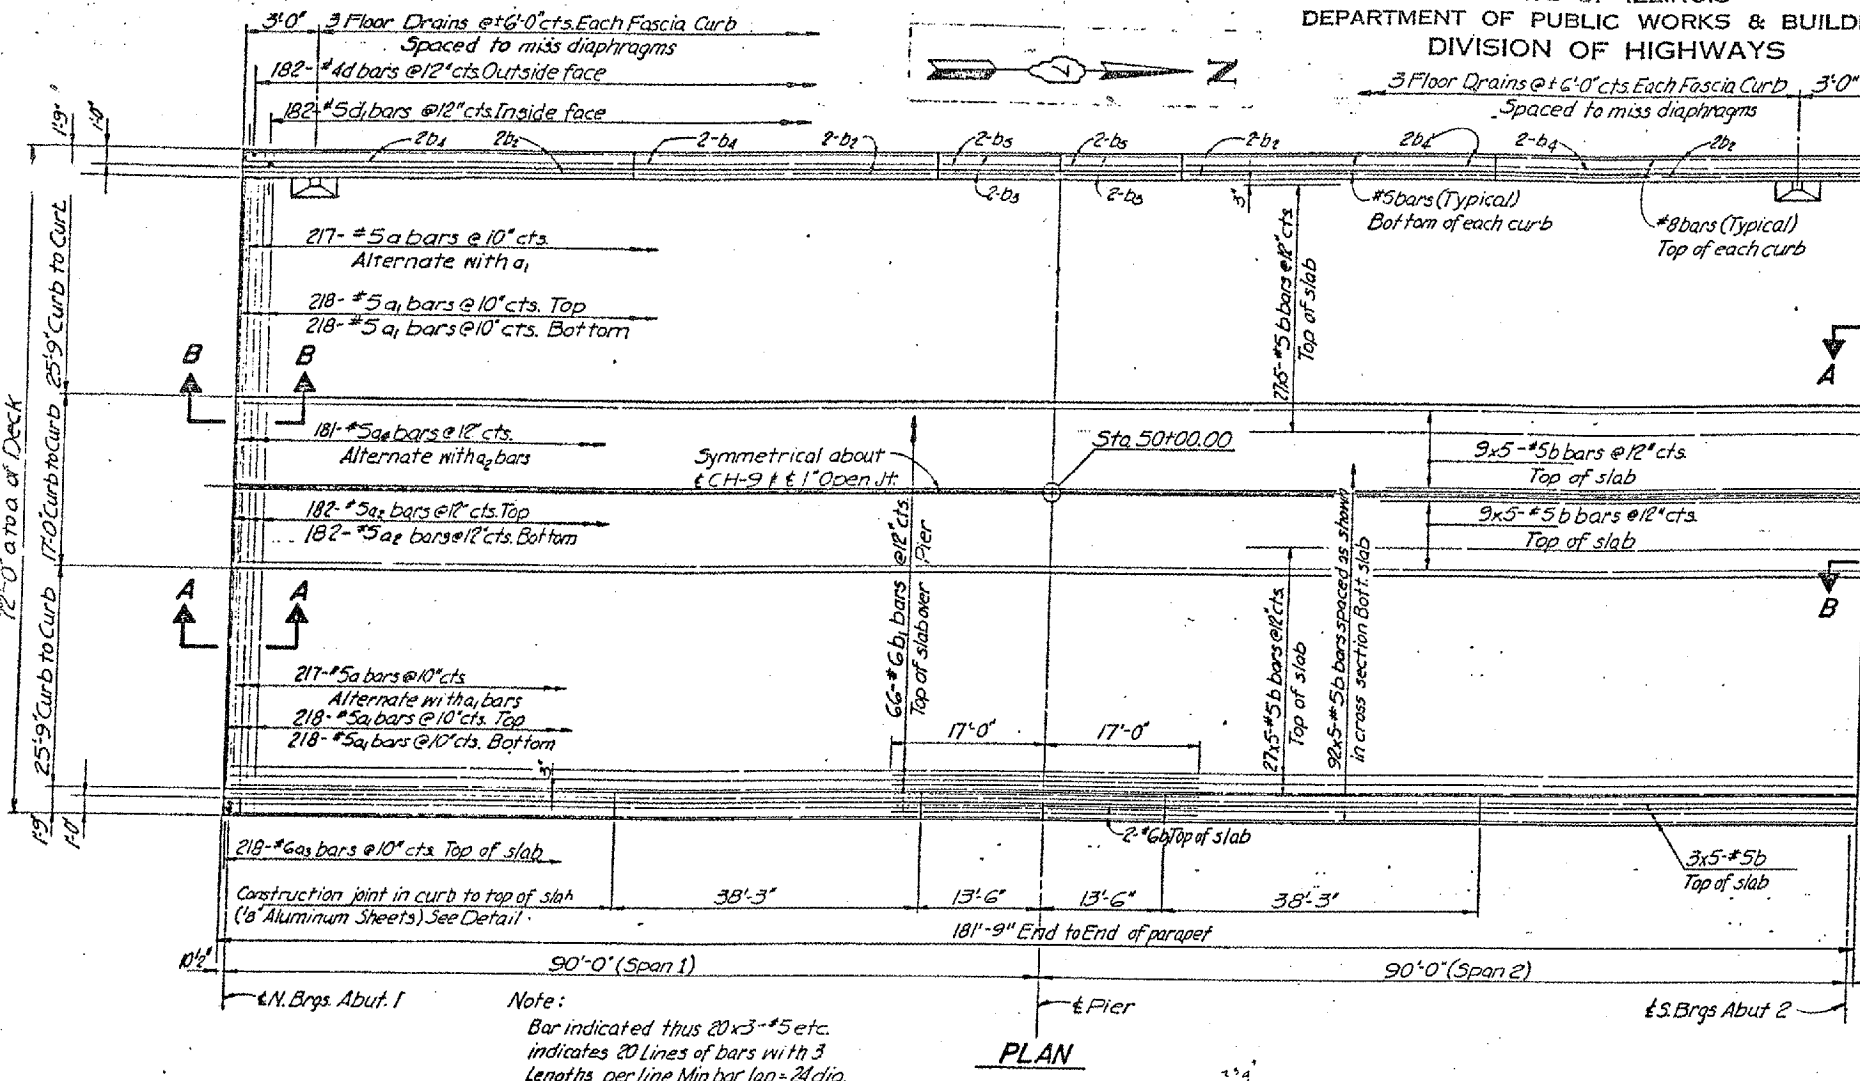 DEPARTMENT OF PUBLIC WORKS & BUILDI
DIVISION OF HIGHWAYS
3'-0" 3 Floor Drains @±6'-0"cts. Each Fascia Curb
Spaced to miss diaphragms
182-#4d bars @12"cts. Outside face
182-#5d₁ bars @12"cts. Inside face
N
3 Floor Drains @±6'-0"cts. Each Fascia Curb 3'-0"
Spaced to miss diaphragms
1'-9"
1'-0"
2b₄ 2b₂ 2-b₄ 2-b₂ 2-b₅ 2-b₅ 2-b₂ 2b₄ 2-b₄ 2b₂
2-b₃ 2-b₃
3"
#5 bars (Typical)
Bottom of each curb
#8 bars (Typical)
Top of each curb
217-#5a bars @10"cts.
Alternate with a₁
218-#5a₁ bars @10"cts. Top
218-#5a₁ bars @10"cts. Bottom
27x5-#5b bars @12"cts.
Top of slab
25'-9" Curb to Curb
B B
A
181-#5a₄ bars @12"cts.
Alternate with a₂ bars
Symmetrical about
℄ CH-9 & ℄ 1" Open Jt.
Sta. 50+00.00
9x5-#5b bars @12"cts.
Top of slab
17'-0" Curb to Curb
182-#5a₂ bars @12"cts. Top
182-#5a₂ bars @12"cts. Bottom
9x5-#5b bars @12"cts.
Top of slab
o. to o. of Deck
A A
B
66-#6b₁ bars @12"cts.
Top of slab over Pier
27x5-#5b bars @12"cts.
Top of slab
92x5-#5b bars spaced as shown
in cross section Bott. slab
25'-9" Curb to Curb
217-#5a bars @10"cts
Alternate with a₁ bars
218-#5a₁ bars @10"cts. Top
218-#5a₁ bars @10"cts. Bottom
17'-0" 17'-0"
3"
1'-9"
1'-0"
2-#6b₁ Top of slab
218-#6a₃ bars @10"cts. Top of slab
3x5-#5b
Top of slab
Construction joint in curb to top of slab
(⅛" Aluminum Sheets) See Detail
38'-3" 13'-6" 13'-6" 38'-3"
181'-9" End to End of parapet
10½"
90'-0" (Span 1) 90'-0" (Span 2)
℄ N. Brgs. Abut. 1
℄ Pier
℄ S. Brgs Abut 2
Note:
Bar indicated thus 20x3-#5 etc.
indicates 20 Lines of bars with 3
Lengths per line Min bar lap = 24 dia.
PLAN